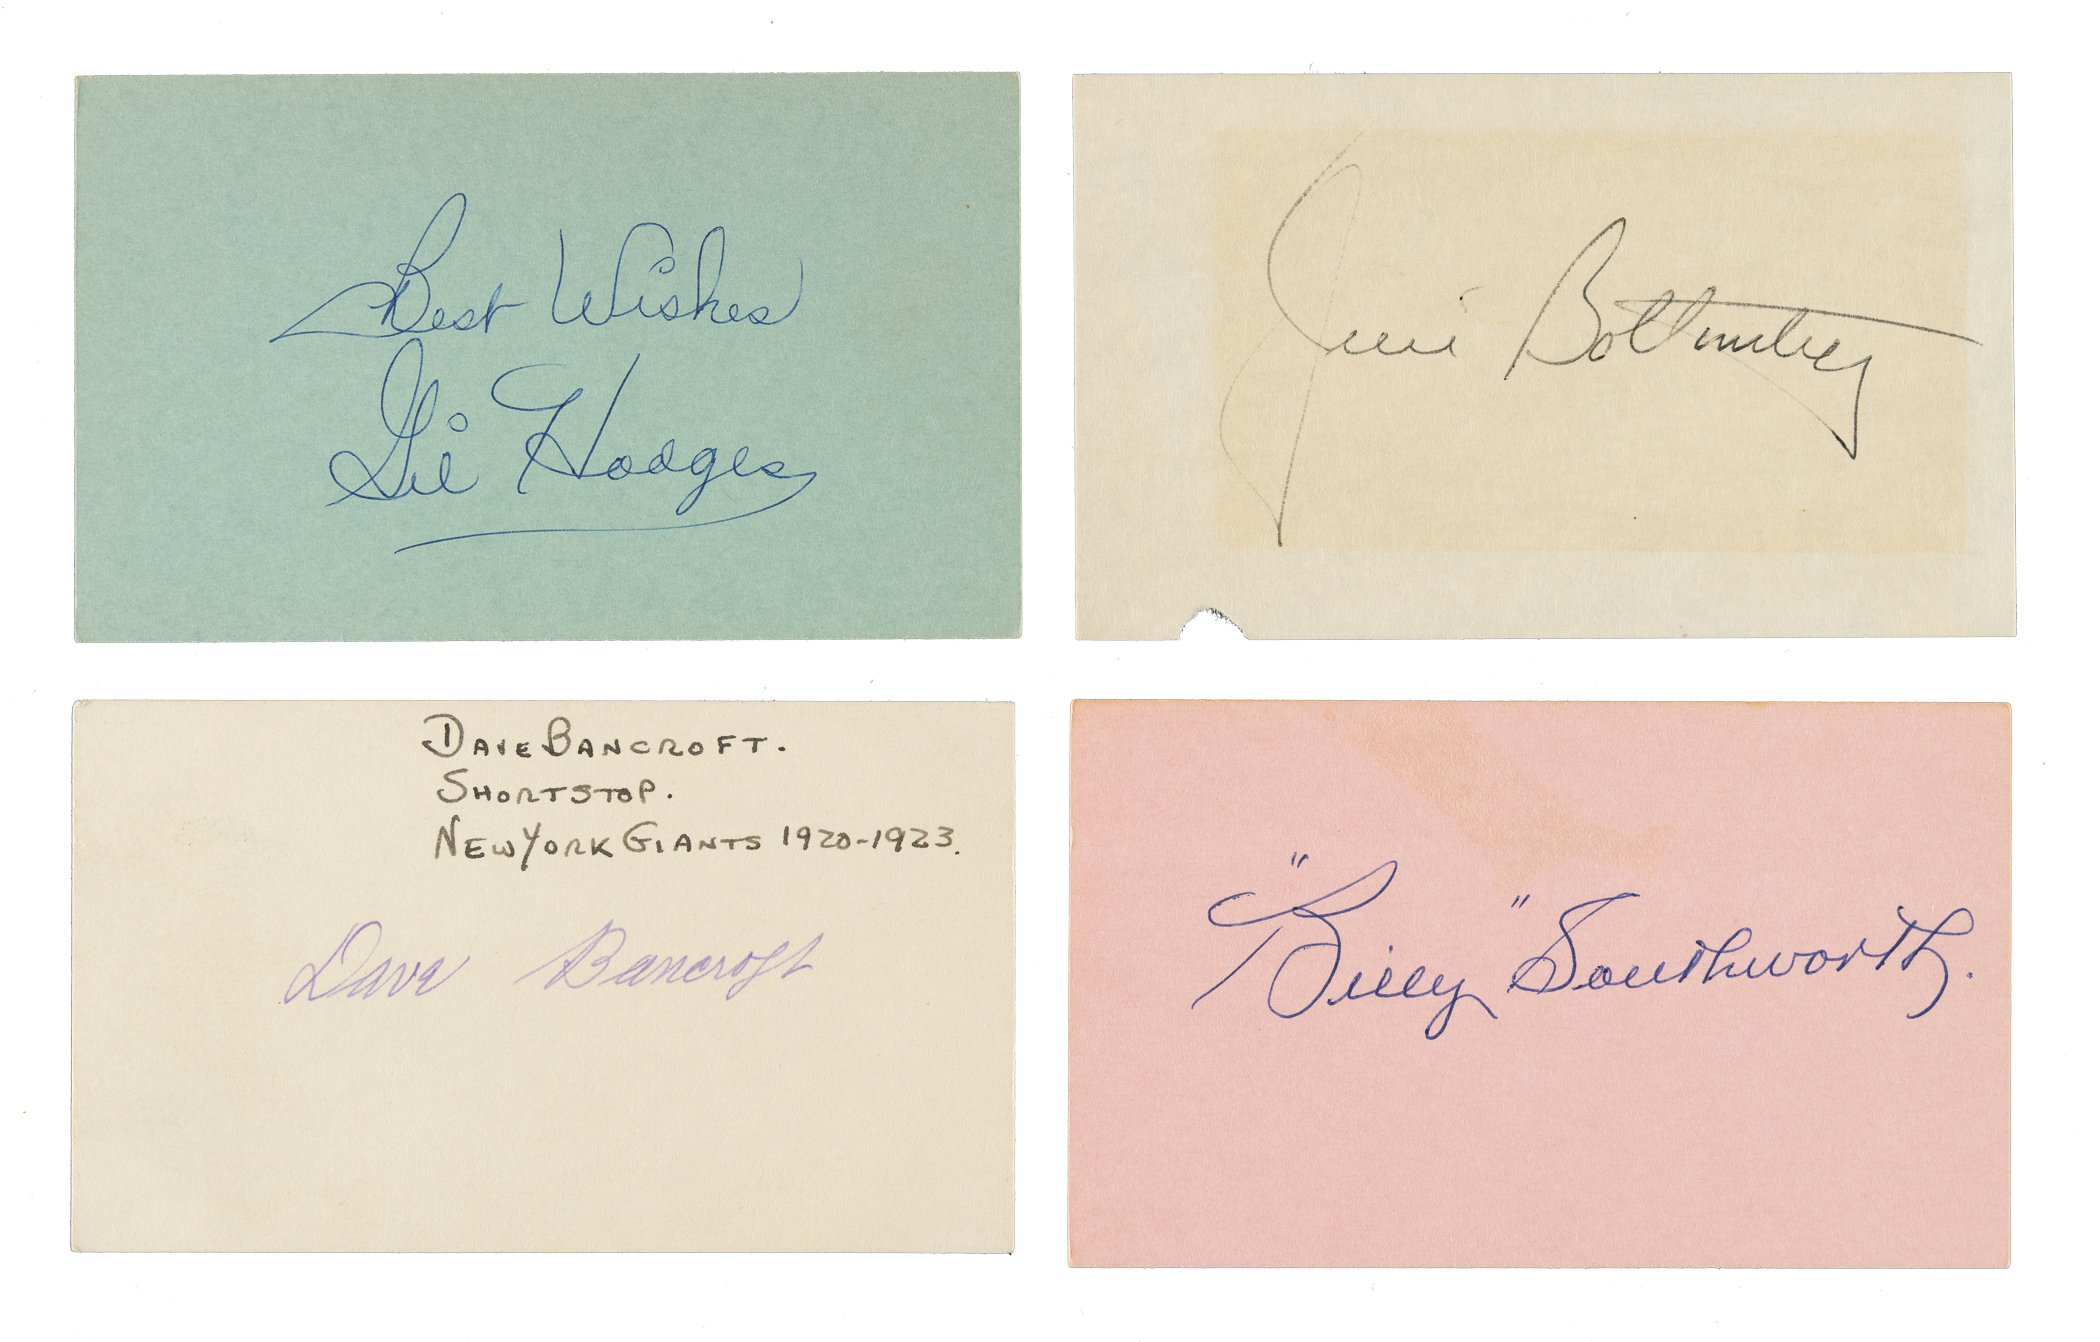 Best Wishes
Gil Hodges
Jim Bottomley
DAVE BANCROFT.
SHORTSTOP.
NEW YORK GIANTS 1920-1923.
Dave Bancroft
"Billy" Southworth.